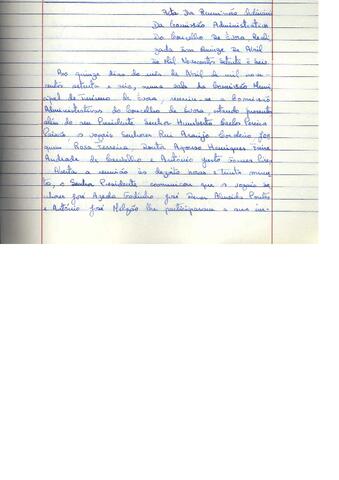 Acta Da Reunião Ordinária
Da Comissão Administrativa
Do Concelho de Évora Reali-
zada Em Quinze De Abril
De Mil Novecentos Setenta e Seis.
Aos quinze dias do mês de Abril de mil nove-
centos setenta e seis, numa sala da Comissão Muni-
cipal de Turismo de Évora, reuniu-se a Comissão
Administrativa do Concelho de Évora, estando presente
além do seu Presidente Senhor Humberto Carlos Pereira
os vogais Senhores Rui Araújo Cordeiro Joa-
quim Rosa Ferreira, Doutor Afonso Henriques
Andrade de Carvalho e António Justo
Aberta a reunião às dezoito horas e trinta minu-
tos, o Senhor Presidente comunicou que os vogais se-
nhores José Azeda Godinho José Almeida
e António José Melgão lhe participaram a sua im-